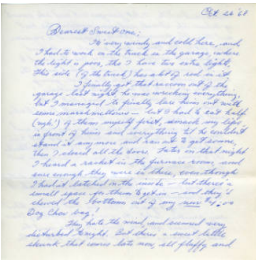 Oct 26 '68
Dearest Sweet one:
It's very windy and cold here, and
I had to work in the truck in the garage, where
the light is poor, tho I have two extra lights.
This side of the truck has a lot of red in it.
I finally got that raccoon out of the
garage last night he was wrecking everything,
but I managed to finally lure him out with
some marshmallows - but I had to eat half
(ugh!) of them myself first, several my limit
in front of him and everything til he couldn't
stand it any more and ran out to get some,
then I closed all the doors. Later in the night
I heard a racket in the furnace room, and
sure enough they were in there, even though
I had it latched in the inside - but there's a
small space for them to get in - and they
chewed the bottom out of my new
Dog Chow bag!
They hate the wind and summer very
disturbed tonight. But there's a sweet little
skunk that comes late now, all fluffy and